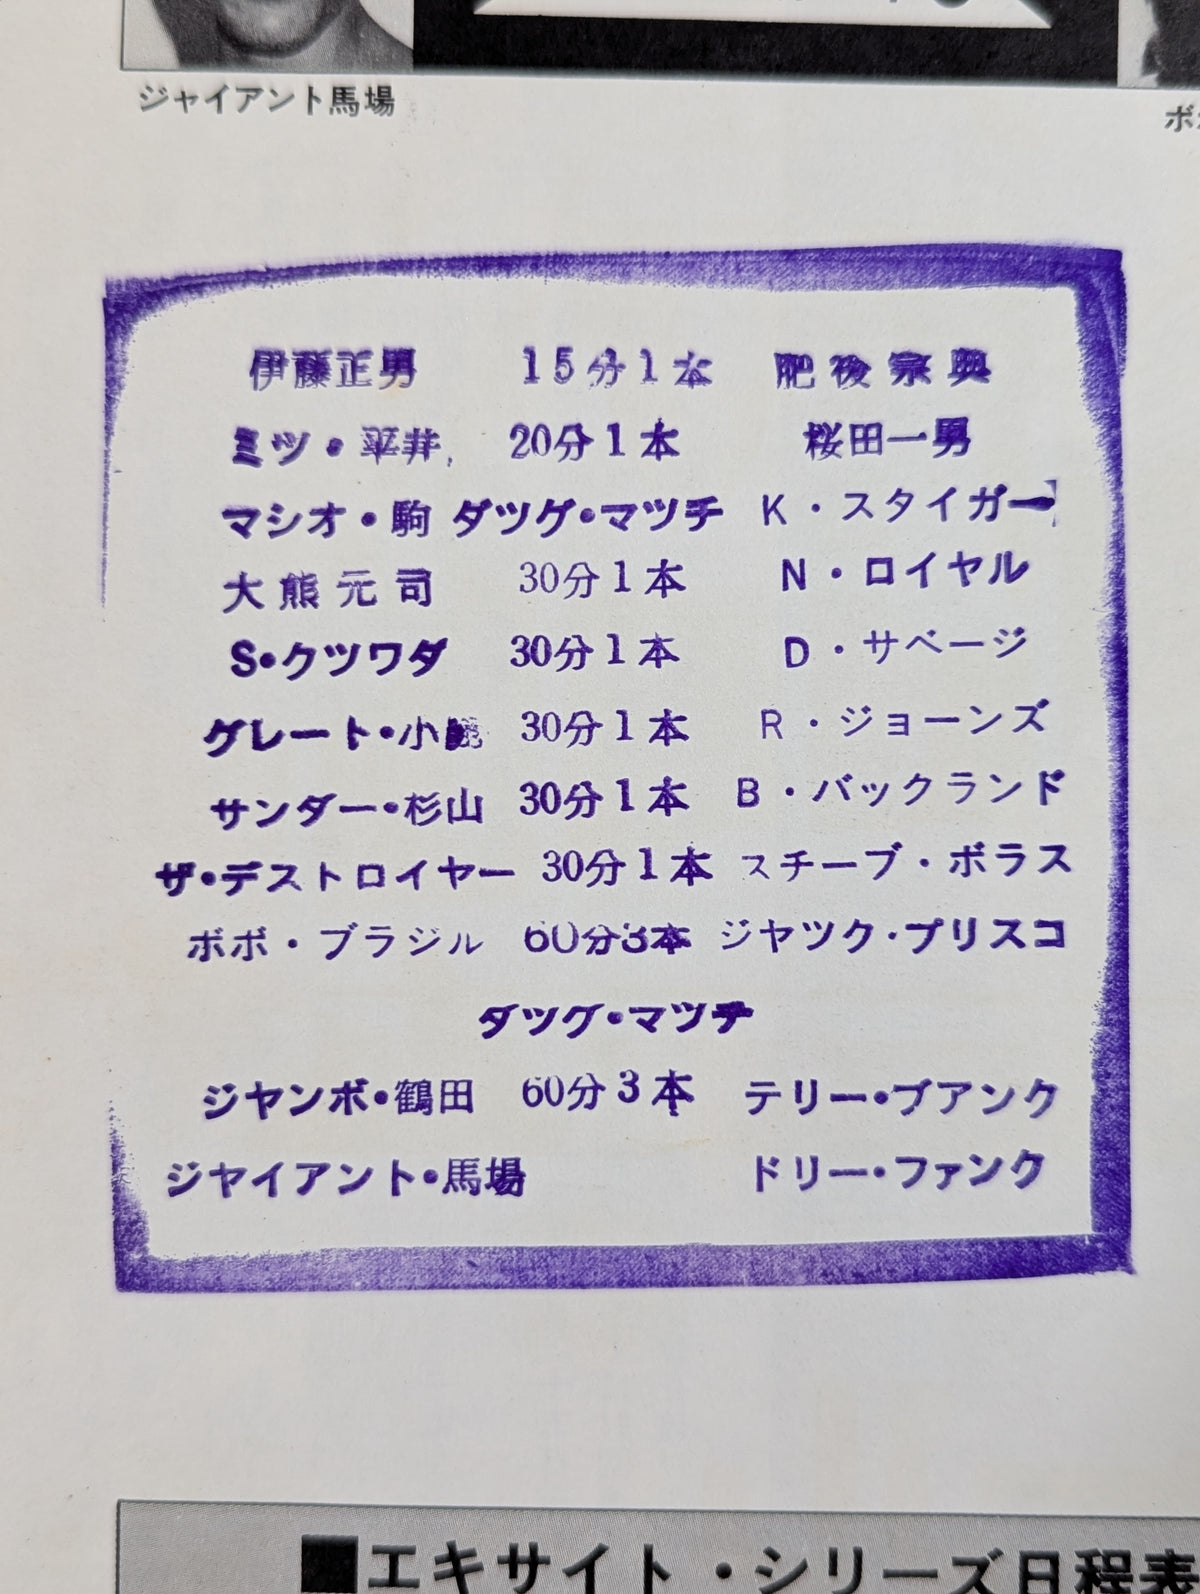 ジャイアント馬場
伊藤正男 15分1本 肥後宗典
ミツ・平井 20分1本 桜田一男
マシオ・駒 ダツグ・マツチ K・スタイガー
大熊元司 30分1本 N・ロイヤル
S・クツワダ 30分1本 D・サベージ
グレート・小 30分1本 R・ジョーンズ
サンダー・杉山 30分1本 B・バックランド
ザ・デストロイヤー 30分1本 スチーブ・ボラス
ボボ・ブラジル 60分3本 ジヤツク・ブリスコ
ダツグ・マツチ
ジヤンボ・鶴田 60分3本 テリー・ブアンク
ジヤイアント・馬場 ドリー・ファンク
■エキサイト・シリーズ日程表